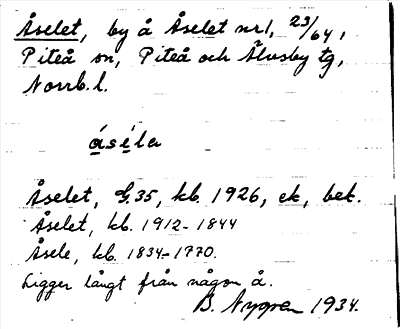 Åselet, by å Åselet nr 1, 23/64,
Piteå sn, Piteå och Älvsby tg,
Norrb. l.
åséla
Åselet, G.35, kb. 1926, ek, bet.
Åselet, kb. 1912-1844
Åsele, kb. 1834-1770.
Ligger långt från någon å.
B. Nygren 1934.